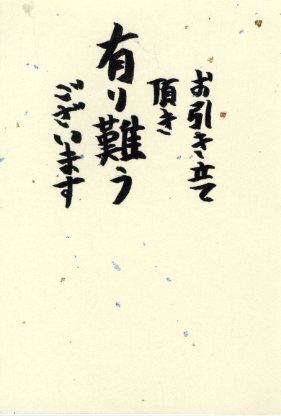 お引き立て
頂き
有り難う
ございます